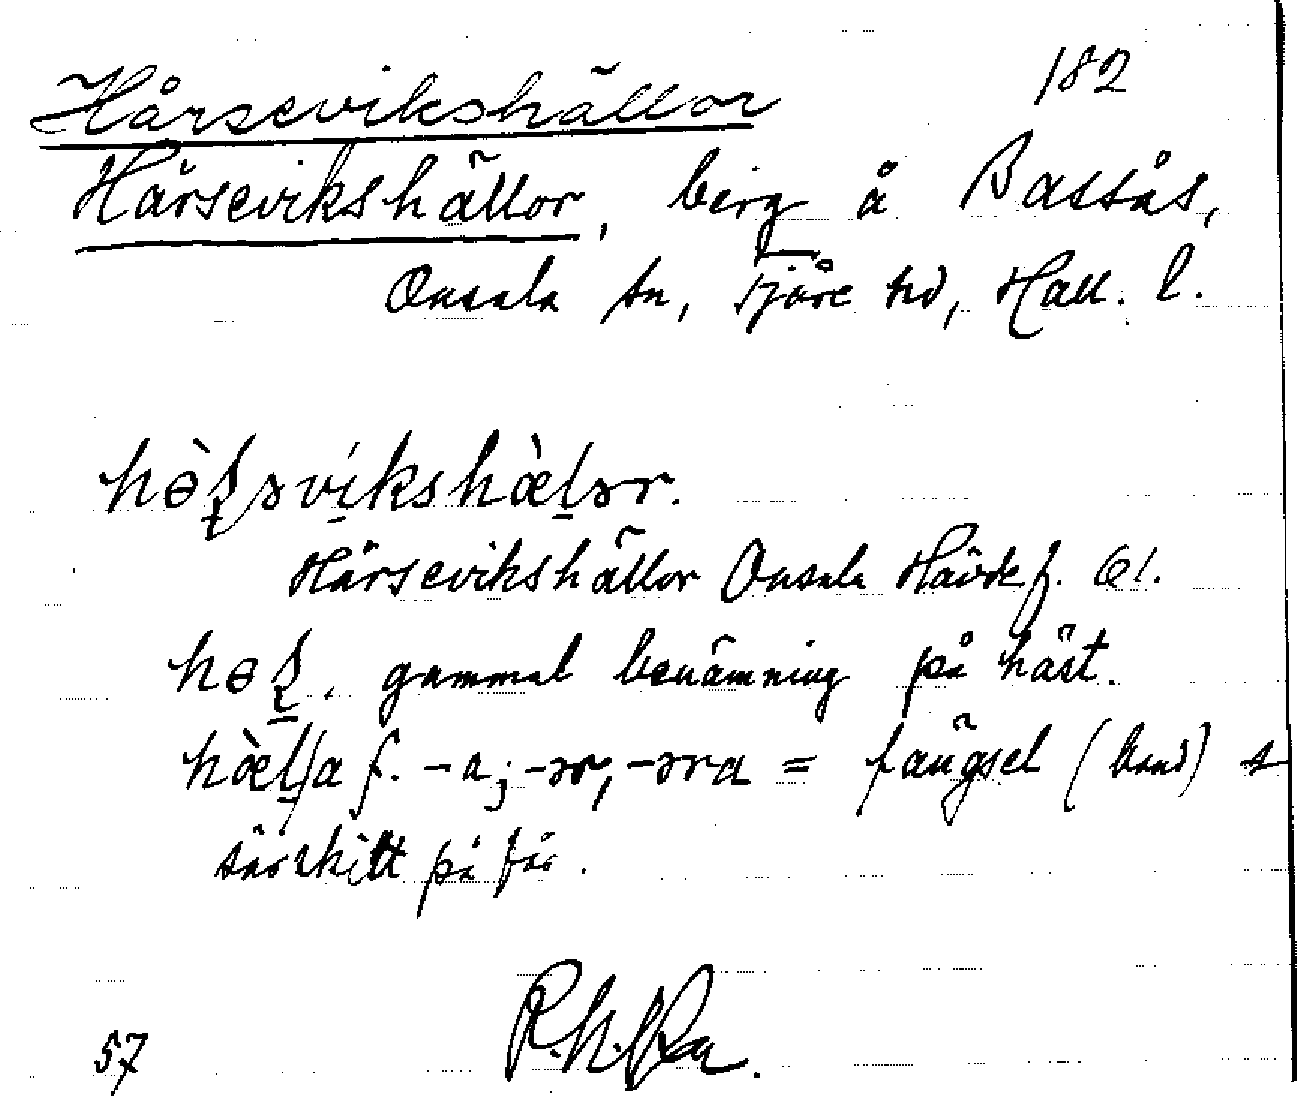 182
Hårsevikshällor
Hårsevikshällor, berg å Bassås,
Onsala sn, Fjäre hd, Hall. l.
hɵ̀ʂəvíkshæ̀lər.
Hårsevikshällor Onsala f. Öl.
hɵʂ, gammal benämning på häst.
hæ̀l/a f. -a; -ər, -əra = fängsel (band)
särskilt på får.
57